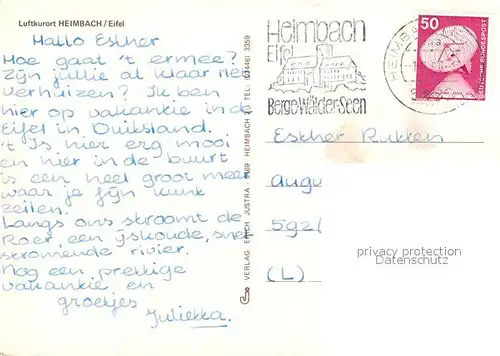 Luftkurort HEIMBACH/Eifel
Hallo Esther
Hoe gaat 't ermee?
Zijn jullie al klaar met
verhuizen? Ik ben
hier op vakantie in de
Eifel in Duitsland.
't Is hier erg mooi
en hier in de buurt
is een heel groot meer
waar je fijn kunt
zeilen.
Langs ons stroomt de
Roer, een ijskoude, snel
stromende rivier.
Nog een prettige
vakantie en
groetjes
VERLAG ERICH JUSTRA - 5169 HEIMBACH TEL: 3359
Heimbach
Eifel
Berge-Wälder-Seen
HEIMBA
50
DEUTSCHE BUNDESPOST
Esther
augu
592/
(L)
privacy protection
Datenschutz